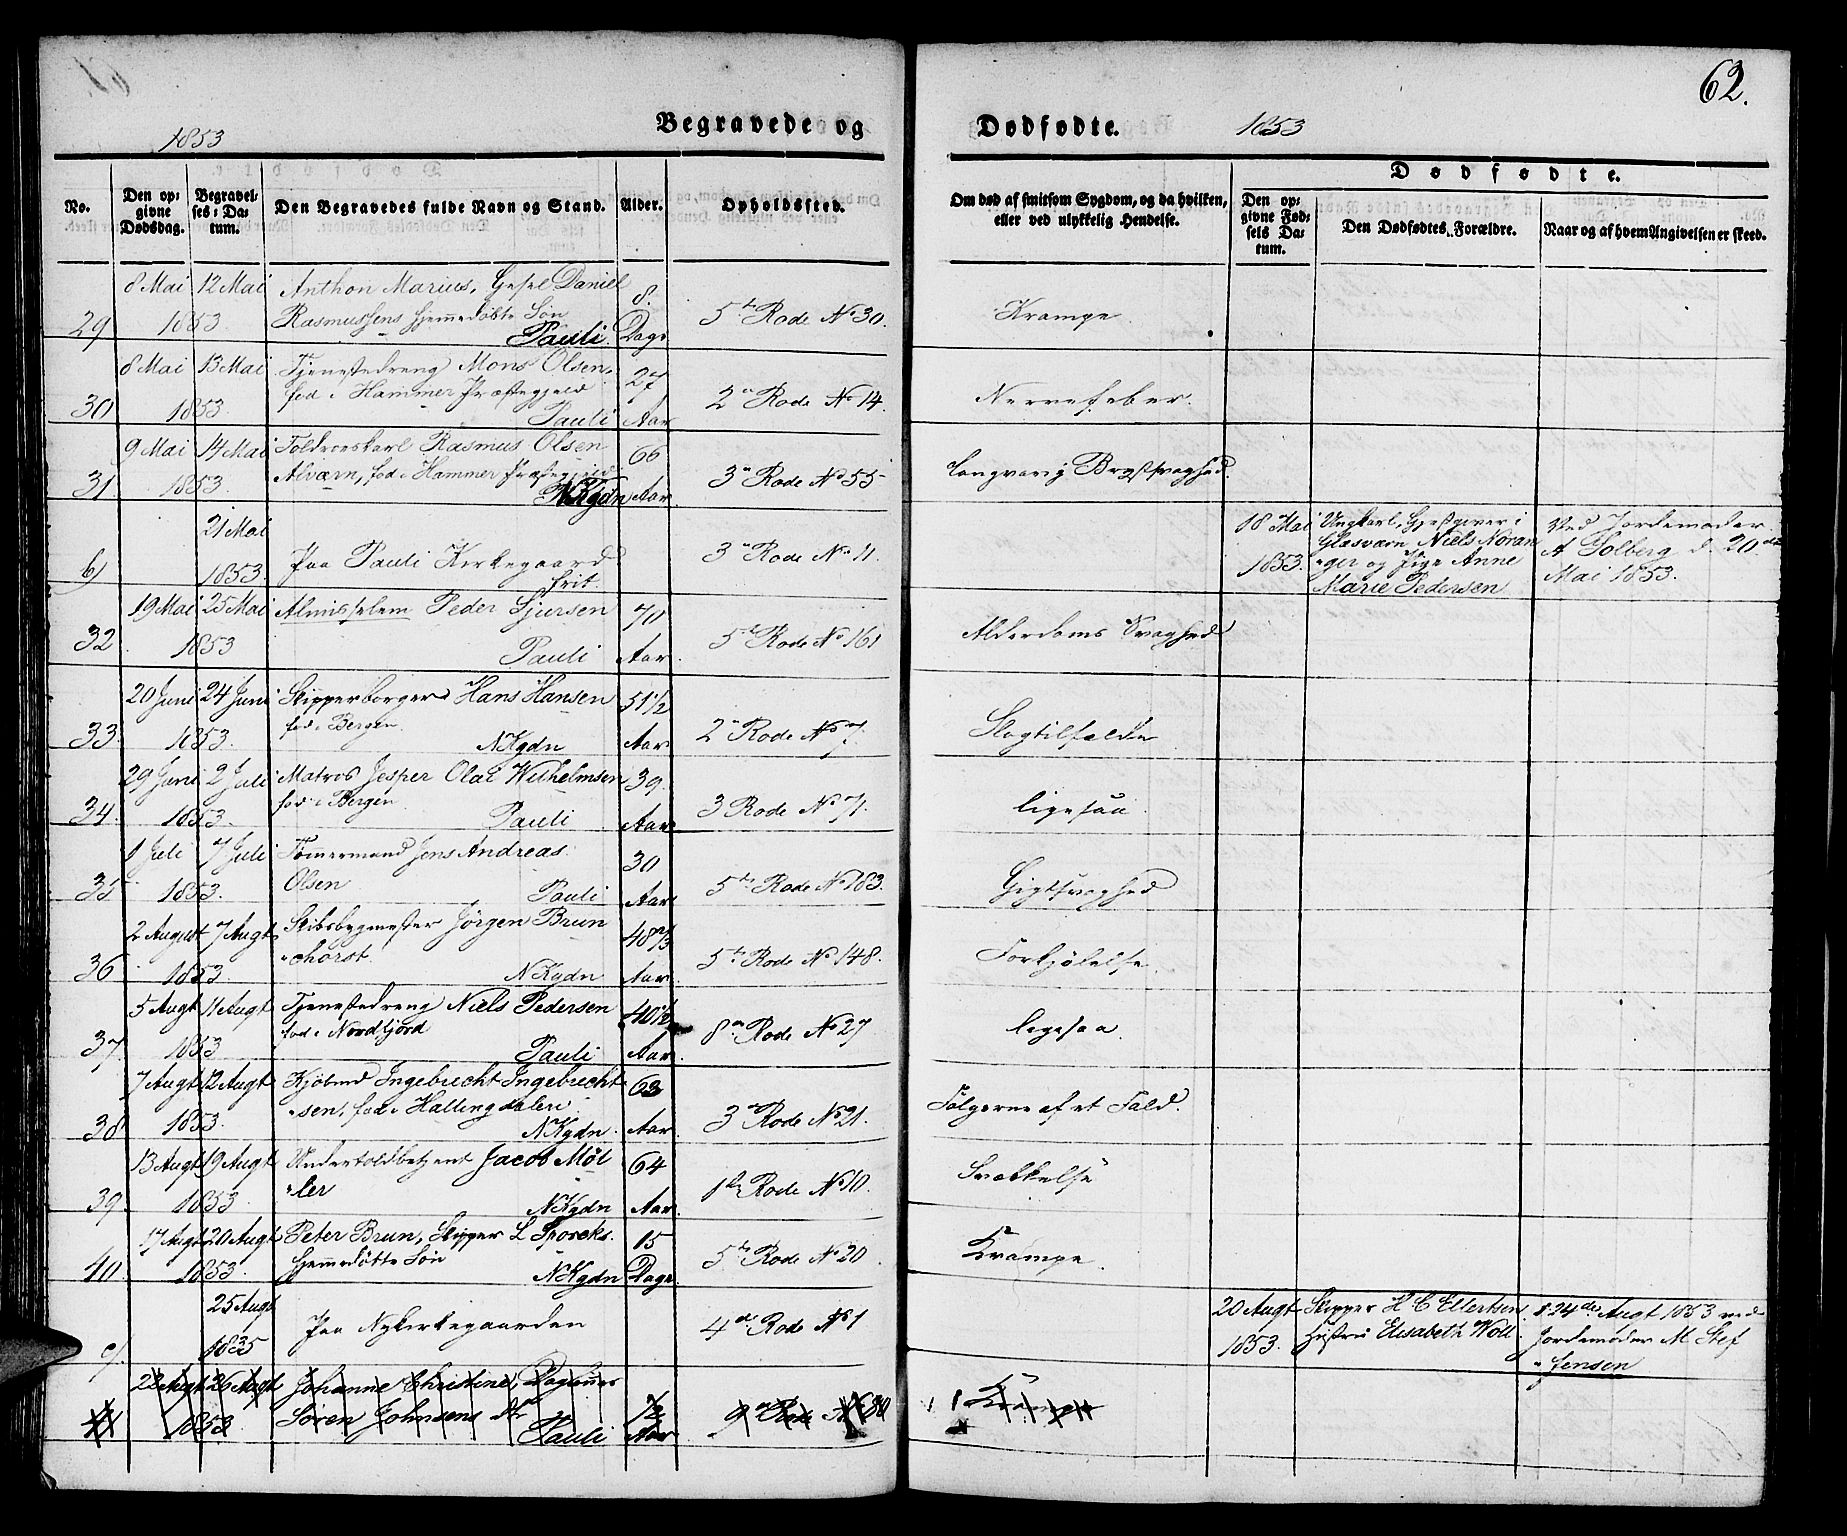 62.
1853 Begravede og Dødfødte. 1853
Dødfødte.
No. Den opgivne Dødsdag. Begravelses-Datum. Den Begravedes fulde Navn og Stand. Alder. Opholdssted. Om død af smitsom Sygdom, og da hvilken, eller ved ulykkelig Hendelse. Den opgivne Fødsels Datum. Den Dødfødtes Forældre. Naar og af hvem Angivelsen er skeed.
8 Mai 12 Mai Anthon Marius, Gesel Daniel 8.
29 1853. Rasmussens hjemmedøbte Søn 5te Rode No 30. Krampe.
Pauli. Dage
8 Mai 13 Mai Tjenestedreng Mons Olsen. 27
30 1853. fød i Hammer Præstegjeld 2n Rode No 14. Nervefeber.
Pauli Aar
9 Mai 14 Mai Toldroerskarl Rasmus Olsen 66
31 1853. Alværn, fød i Hammer Præstegjeld 3n Rode No 55 langvarig Brystsvaghed.
NKgdn Aar
21 Mai 18 Mai Ungkarl, Gjestgiver i Ved Jordemoder
6) 1853. Paa Pauli Kirkegaard 3n Rode No 11. Glasværn Niels Noran A Solberg d. 20de
frit. 1853. ger og Pige Anne Mai 1853.
Marie Pedersen
19 Mai 25 Mai Almisselem Peder Sjursen 70
32 1853 Pauli Aar. 5te Rode No 161 Alderdoms Svaghed
20 Juni 24 Juni Skipperborger Hans Hansen 51 1/2
33. 1853. fød i Bergen. NKgdn Aar 2n Rode No 7. Slagtilfælde
29 Juni 2 Juli Matros Jesper Olai Wilhelmsen 39.
34. 1853. fød i Bergen. Pauli Aar 3 Rode No 71. ligesaa.
1 Juli 7 Juli Tømmermand Jens Andreas 30
35 1853. Olsen Pauli Aar 5te Rode No 183. Gigtsvaghed
2 August 7 Augt Skibsbygmester Jørgen Brun 48 2/3
36 1853. chorst. NKgdn Aar 5te Rode No 148. Forkjølelse.
5 Augt 11 Augt Tjenestedreng Niels Pedersen 40 1/2
37 1853 fød i Nordfjord Pauli Aar. 8n Rode No 27 ligesaa.
7 Augt 12 Augt Kjøbmd Ingebrecht Ingebrecht 63
38 1853. sen, fød i Hallingdalen NKgdn Aar. 3n Rode No 21. Følgerne af et Fald.
13 Augt 19 Augt Undertoldbetjent Jacob Møl 64
39. 1853. ler NKgdn Aar. 1te Rode No 10. Svækkelse
17 Augt 20 Augt Peter Brun, Skipper L Sporcks. 15
40. 1853. hjemmedøbte Søn NKgdn Dage 5te Rode No 20. Krampe.
25 Augt 20 Augt Skipper H C Ellertsen. d. 24de Augt 1853 ved
1835 Paa Nykirkegaarden 4de Rode No 1 1853. Hustru Elisabeth Woll Jordemoder M Stef
fensen
22 Augt 26 Augt Johanne Christine, Dagløner
41 1853 Søren Johnsens Dtr Pauli 1/2 Aar 9n Rode No 80 Krampe